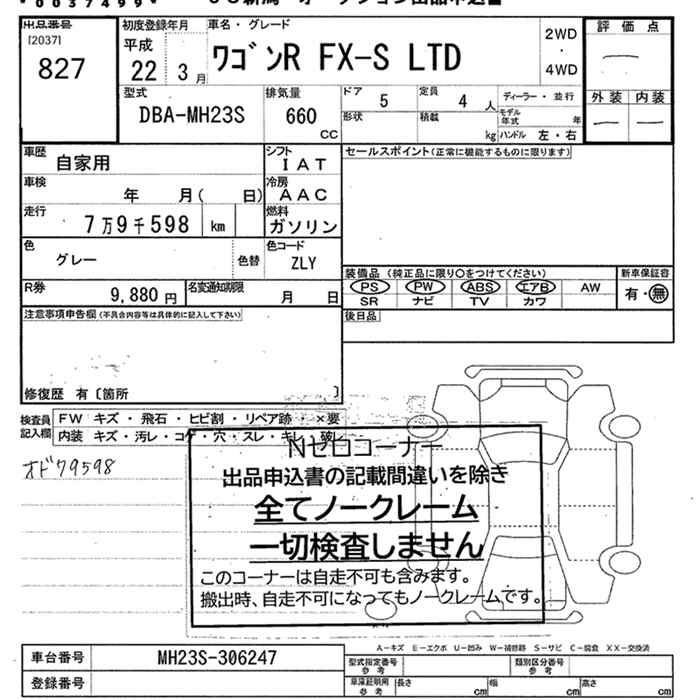 *0037499*
出品番号
[2037]
827
初度登録年月
平成
22 3月
車名・グレード
ワゴンR FX-S LTD
2WD
・
4WD
評価点
外装 内装
型式
DBA-MH23S
排気量
660
CC
ドア
5
定員
4 人
ディーラー・並行
形状
積載
kg
モデル年式
年
ハンドル 左・右
車歴
自家用
シフト
IAT
セールスポイント(正常に機能するものに限ります)
車検
年 月( 日)
冷房
AAC
走行
7万9千598 km
燃料
ガソリン
色
グレー
色替
色コード
ZLY
R券
9,880 円
名変通知期限
月 日
装備品 (純正品に限り○をつけてください)
新車保証書
PS PW ABS エアB AW
SR ナビ TV カワ
有・無
注意事項申告欄 (不具合内容等は具体的に記入して下さい)
後日品
修復歴 有〔箇所 〕
検査員
記入欄
FW キズ・飛石・ヒビ割・リペア跡・×要
内装 キズ・汚レ・コゲ・穴・スレ・キレ・破レ
オド79598
Nゼロコーナー
出品申込書の記載間違いを除き
全てノークレーム
一切検査しません
このコーナーは自走不可も含みます。
搬出時、自走不可になってもノークレームです。
A-キズ E-エクボ U-凹み W-補修跡 S-サビ C-腐食 XX-交換済
車台番号 MH23S-306247
型式指定番号
参考
類別区分番号
参考
登録番号
車庫証明用
参考
長さ cm 幅 cm 高さ cm